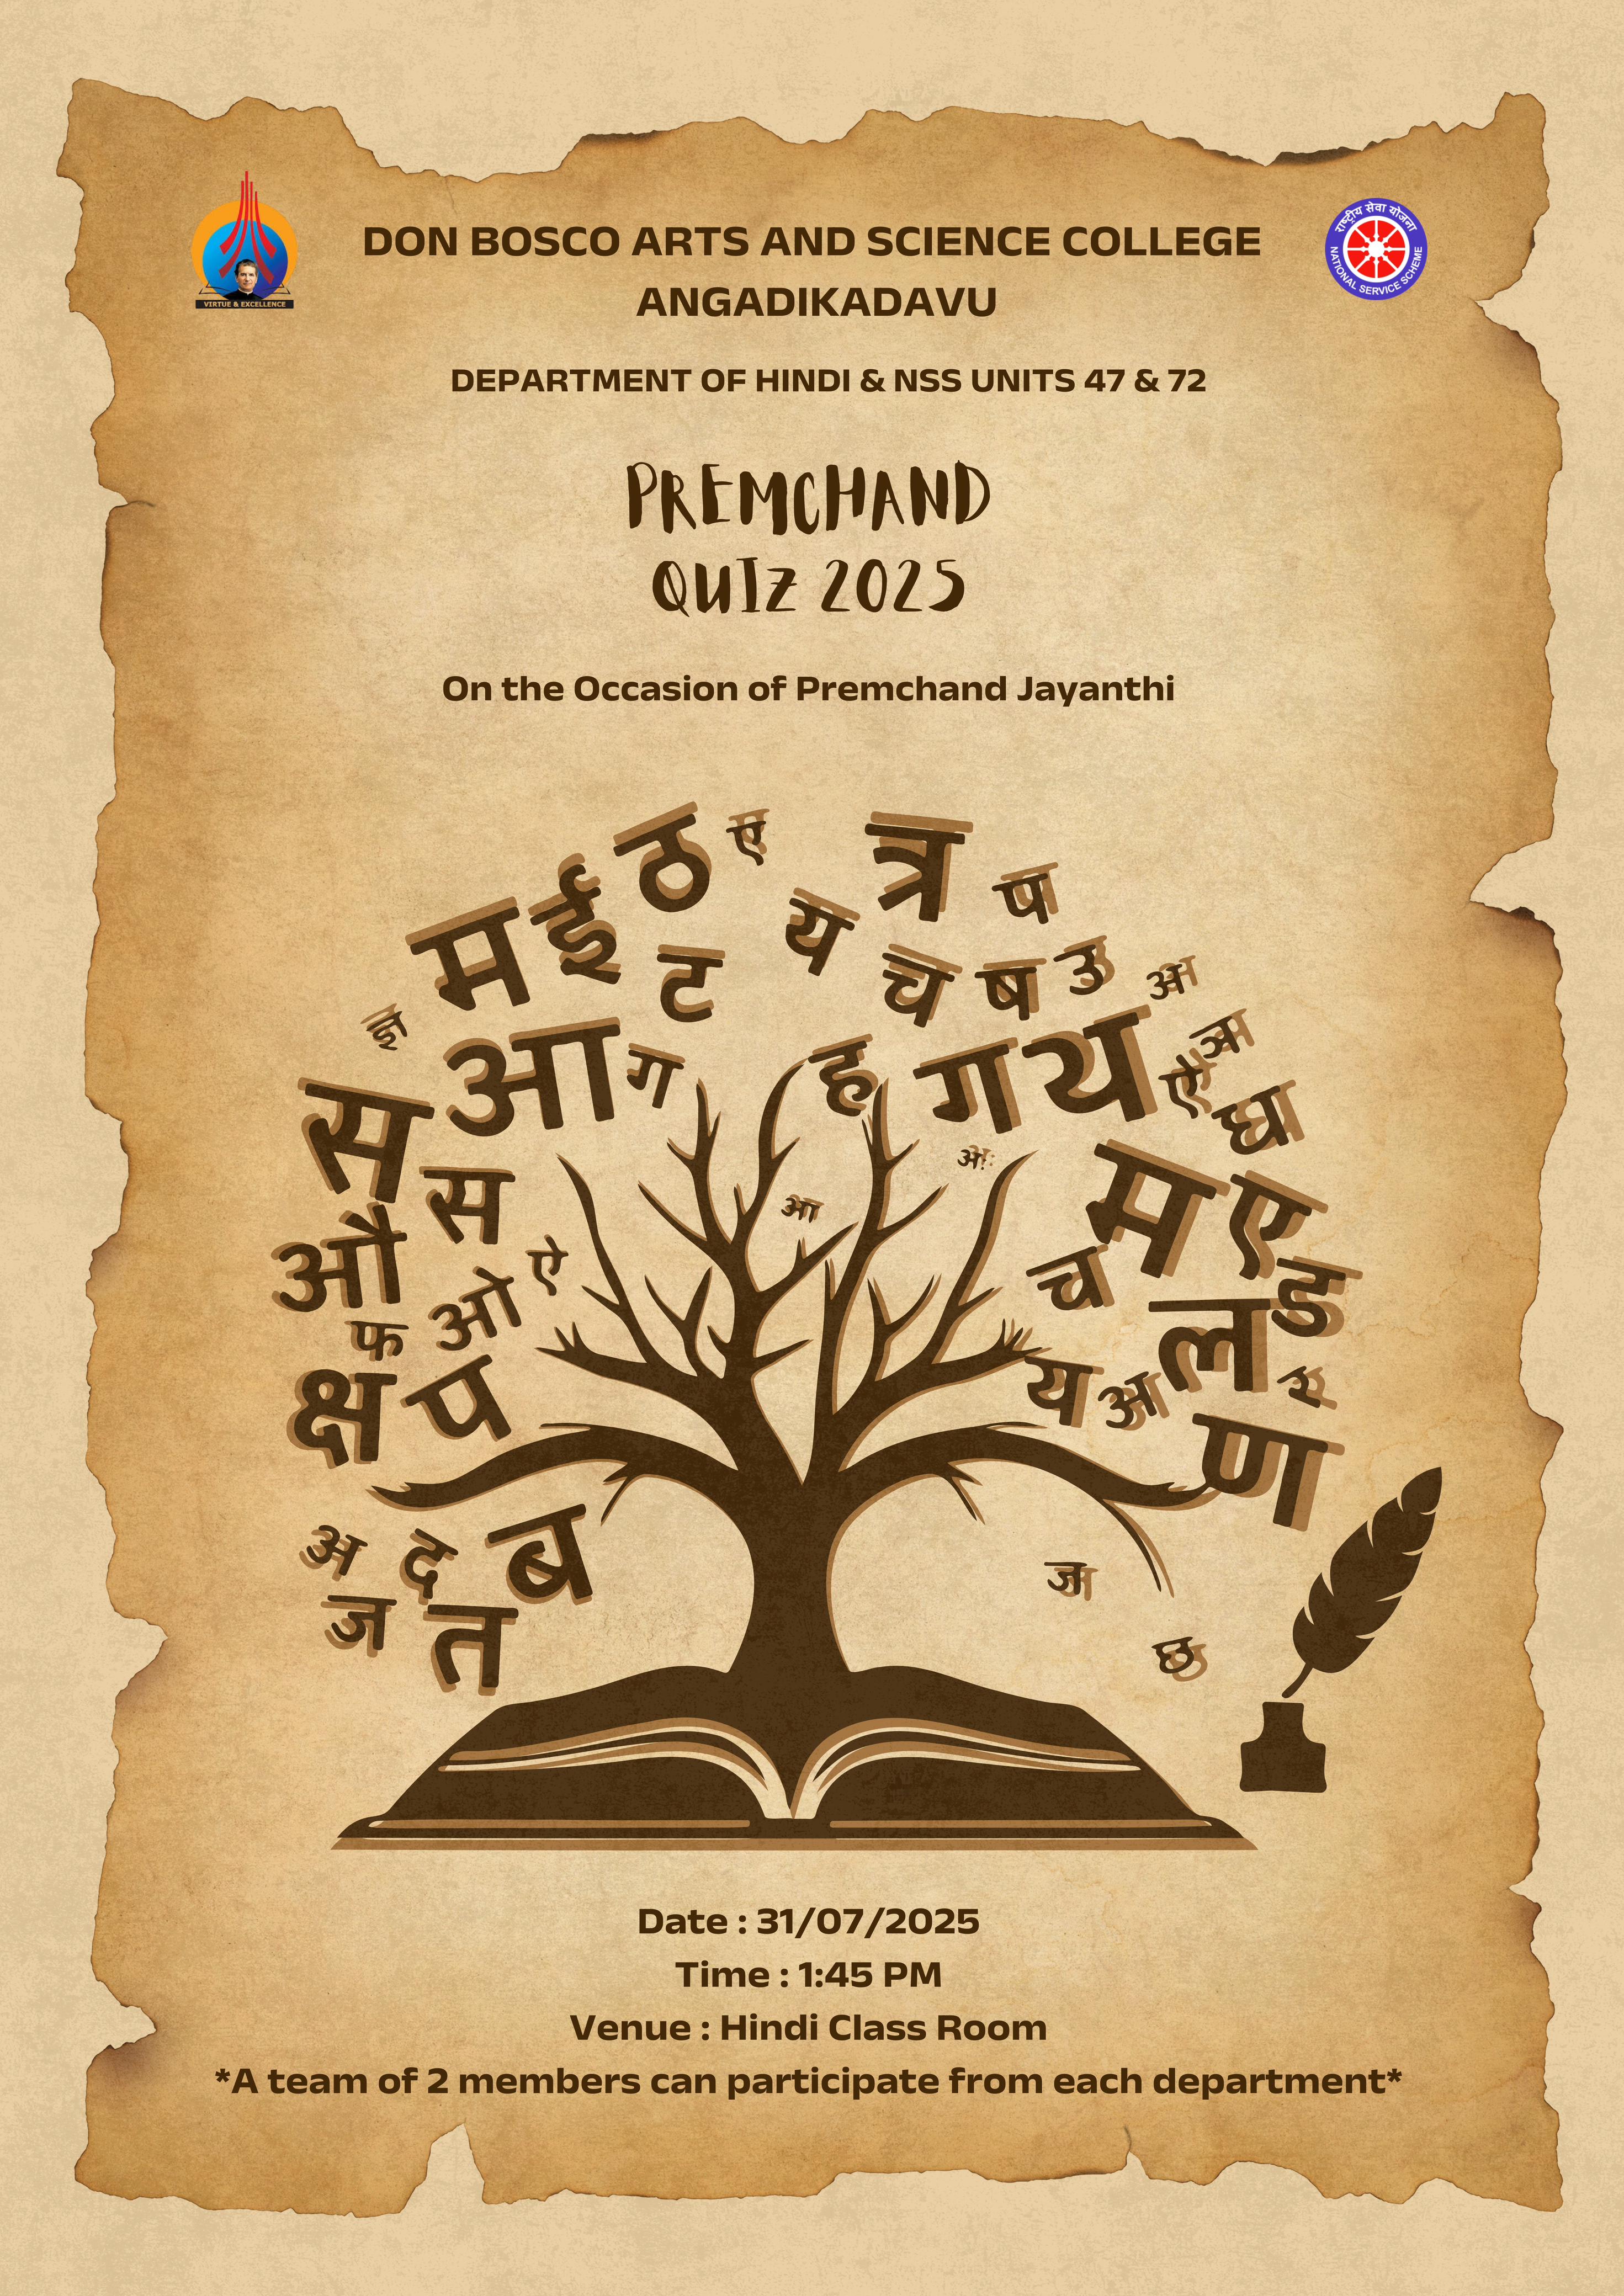 DON BOSCO ARTS AND SCIENCE COLLEGE
ANGADIKADAVU
VIRTUE & EXCELLENCE
राष्ट्रीय सेवा योजना
NATIONAL SERVICE SCHEME
DEPARTMENT OF HINDI & NSS UNITS 47 & 72
PREMCHAND
QUIZ 2025
On the Occasion of Premchand Jayanthi
ठ ए त्र
म ई य प
ट च ष उ अ
आ ग ह ग य ऐ घ
स
स आ म ए
औ ओ ऐ च ड
फ ल
क्ष प य अ
ण
अ द ब
ज त ज
छ
Date : 31/07/2025
Time : 1:45 PM
Venue : Hindi Class Room
*A team of 2 members can participate from each department*